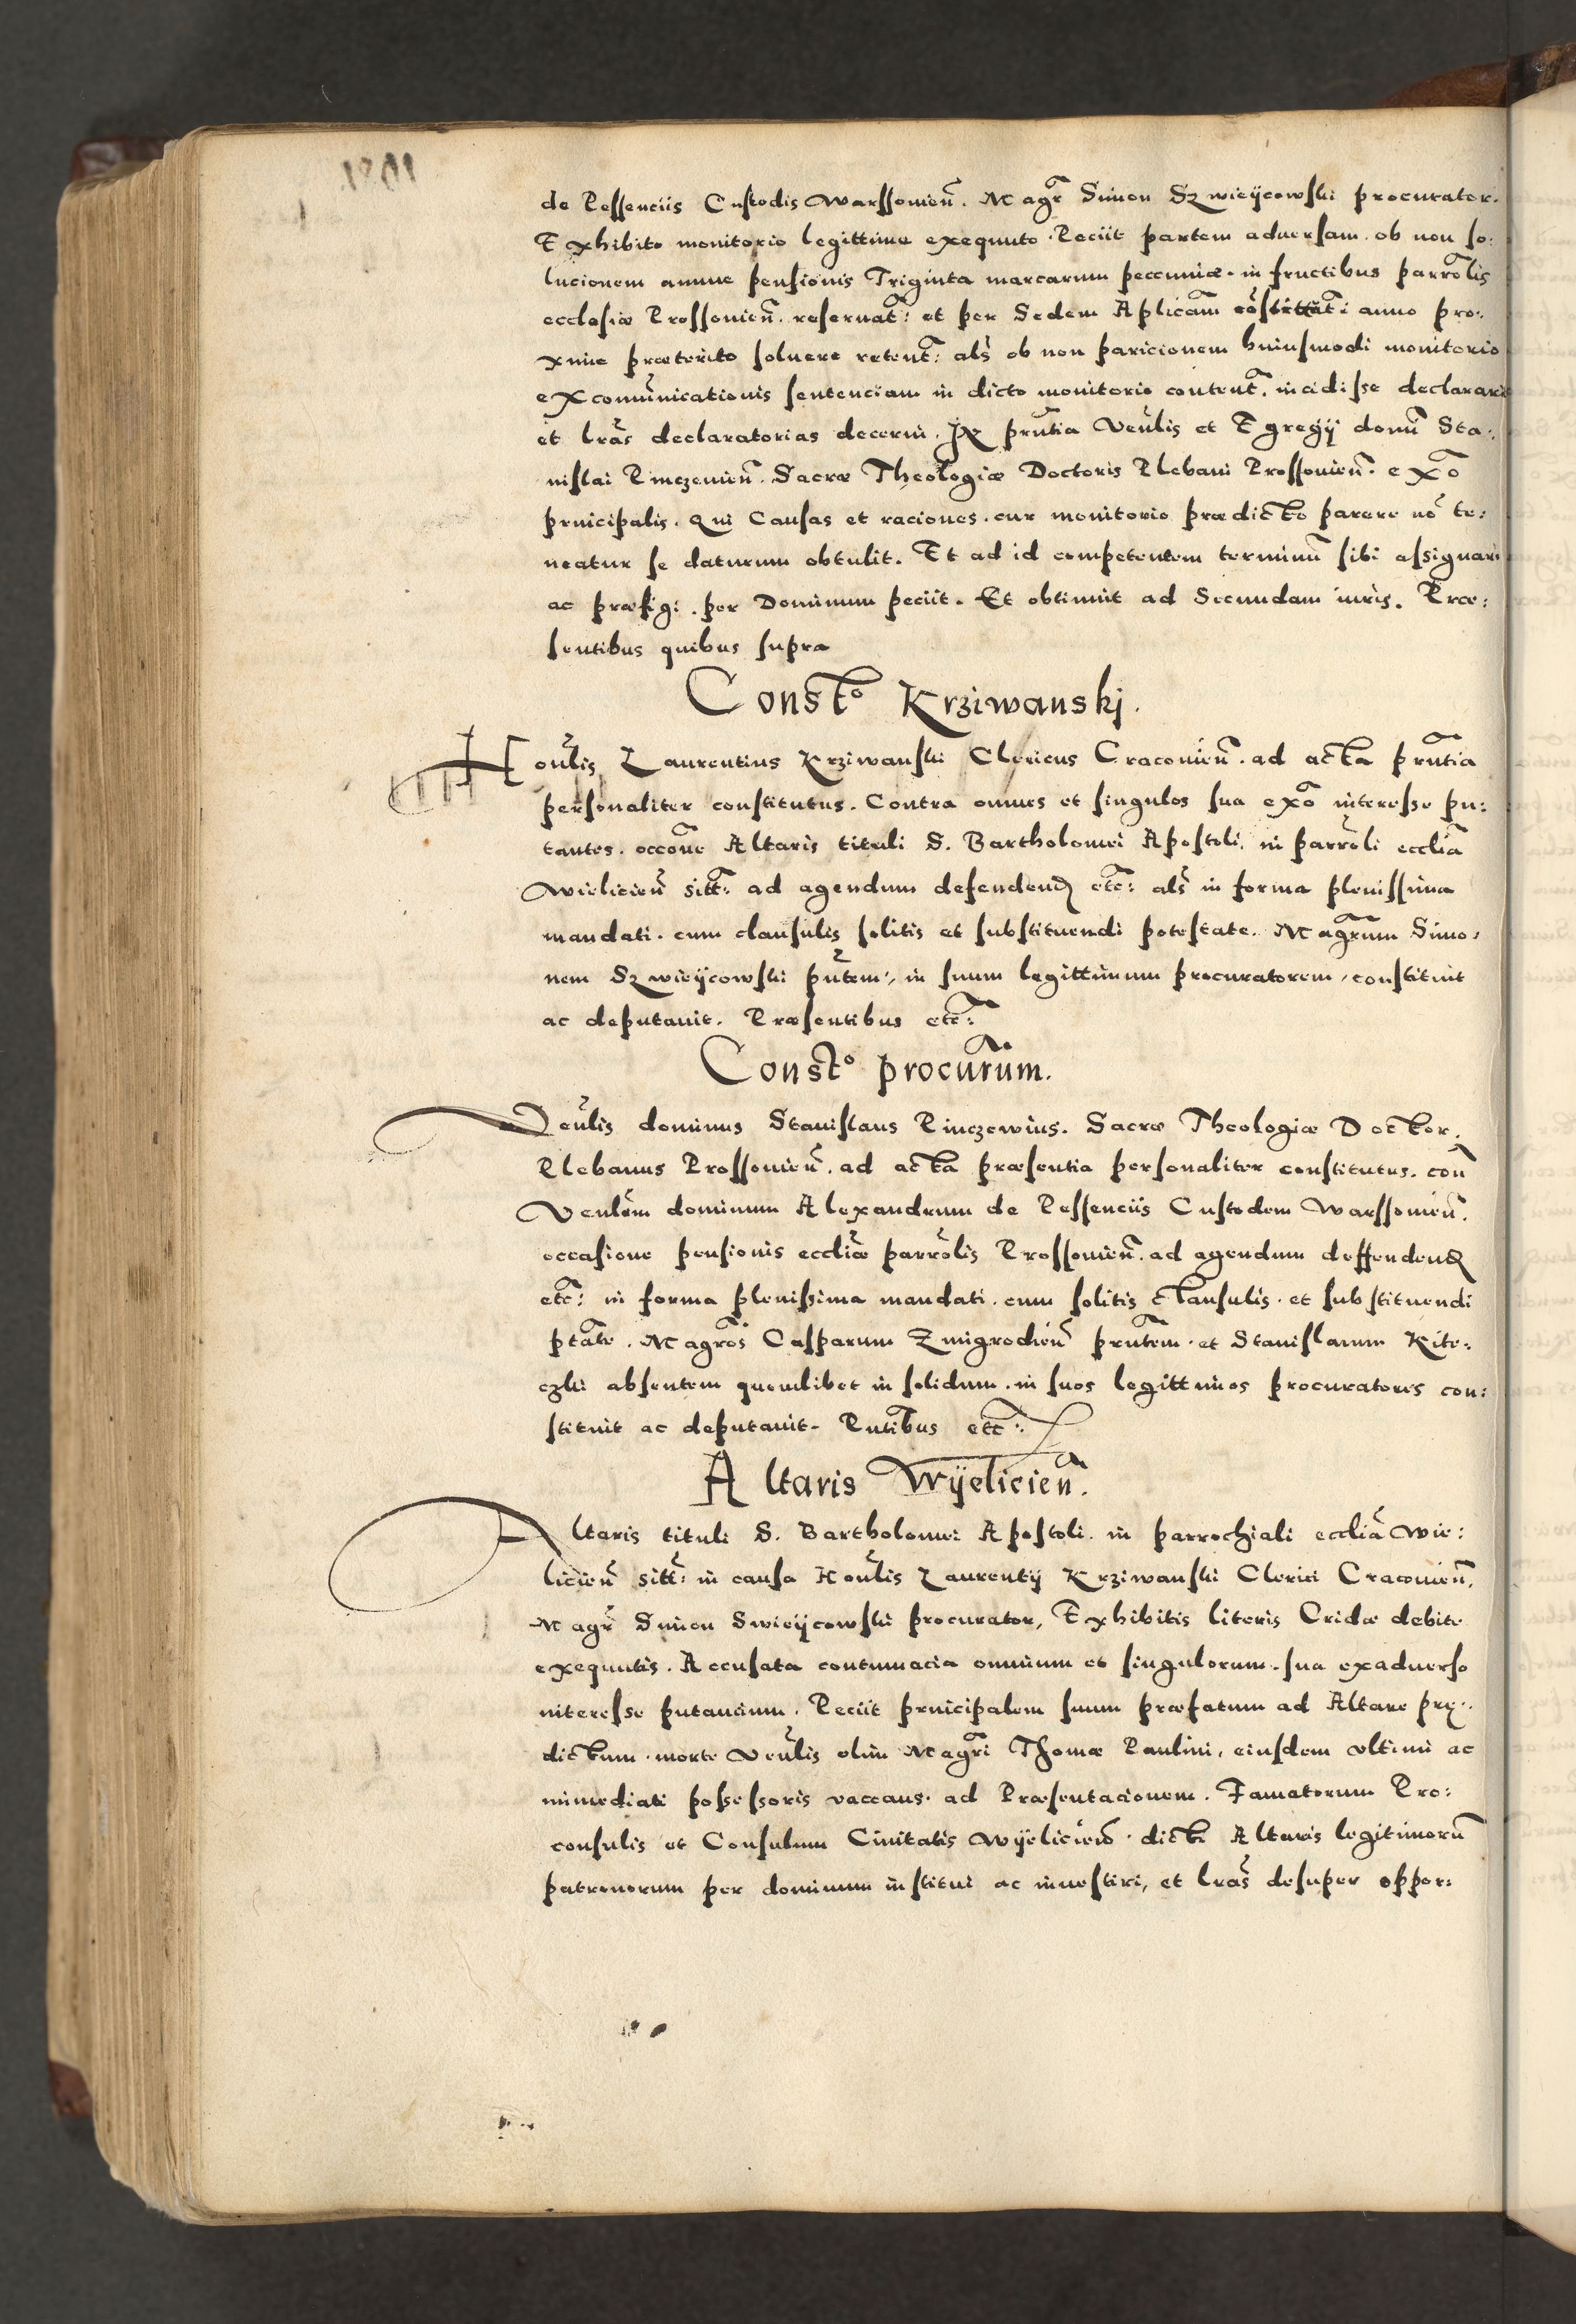 de Pessenciis Custodis Warssouien̄. Magr̄ Simon Szwieÿcowski procurator.
Exhibito monitorio legittime exequuto. Peciit partem aduersam. ob non so:
lucionem annue pensionis Triginta marcarum pecuniæ. in fructibus parrōlis
ecclesiæ Prossouien̄. reseruat̄: et per Sedem Aplicām anno pro:
xime præterito soluere retent̄: als̄ ob non paricionem huiusmodi monitorio
excomūnicationis sentenciam in dicto monitorio content̄. incidisse declarari
et lrās declaratorias decerni. In prn̄tia Venlis̄ et Egregÿ domī Sta:
nislai Pinczouien̄. Sacræ Theologiæ Doctoris Plebani Prossouien̄. exō
principalis. Qui Causas et raciones. cur monitorio prædicto parere nō te:
neatur se daturum obtulit. Et ad id competentem terminū sibi assignari
ac præfigi. per Dominum peciit. Et obtinuit ad Secundam iuris. Præ:
sentibus quibus supra
Constō Krziwanskj.
Honlis̄ Laurentius Krziwanski Clericus Cracouien̄. ad acta prn̄tia
personaliter constitutus. Contra omnes et singulos sua exō interesse pu:
tantes. occōne Altaris tituli S. Bartholomei Apostoli. in parrōli ecclīa
Wielicien̄ sitt̄: ad agendum defendend̄ etc̄: als̄ in forma plenissima
mandati. cum clausulis solitis et substituendi potestate. Magrūm Simo:
nem Szwieÿcowski pūtem:, in suum legittimum procuratorem, constituit
ac deputauit. Præsentibus etc̄:
Constō procurūm.
Venlis̄ dominus Stanislaus Pinczowius. Sacræ Theologiæ Doctor.
Plebanus Prossouien̄. ad acta præsentia personaliter constitutus. con̄
Venlēm dominum Alexandrum de Pessenciis Custodem Warssouien̄.
occasione pensionis ecclīæ parrōlis Prossouien̄. ad agendum deffendend̄
etc̄: in forma plenissima mandati. cum solitis clausulis. et substituendi
ptāte. Magrōs Casparum Zmigrodien̄ prn̄tem. et Stanislaum Kite:
czki absentem quemlibet in solidum. in suos legittimos procuratores con:
stituit ac deputauit. Pntībus etc̄:
Altaris Wÿelicien̄.
Altaris tituli S. Bartholomei Apostoli. in parrochiali ecclīa Wie:
licien̄ sitt̄: in causa Honlis̄ Laurentÿ Krziwanski Clerici Cracouien̄.
Magr̄ Simon Swieÿcowski procurator, Exhibitis literis Cridæ debite
exequutis. Accusata contumacia omnium et singulorum. sua exaduerso
interesse putancium. Peciit principalem suum præfatum ad Altare prę:
dictum. morte Venlis̄ olim Magrī Thomæ Paulini, eiusdem vltimi ac
immediati possessoris vaccans. ad Præsentacionem. Famatorum Pro:
consulis et Consulum Ciuitatis Wÿelicien̄. dicti Altaris legitimorū
patronorum per dominum institui ac inuestiri, et lrās desuper oppor: